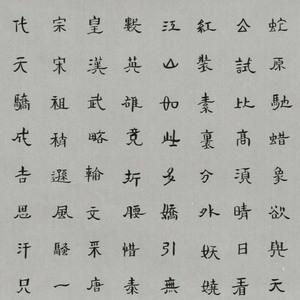 蛇原馳蜡象欲與天
公試比高須晴日看
紅裝素裹分外妖嬈
江山如此多嬌引無
數英雄竟折腰惜秦
皇漢武略輸文采唐
宗宋祖稍遜風騷一
代天驕成吉思汗只